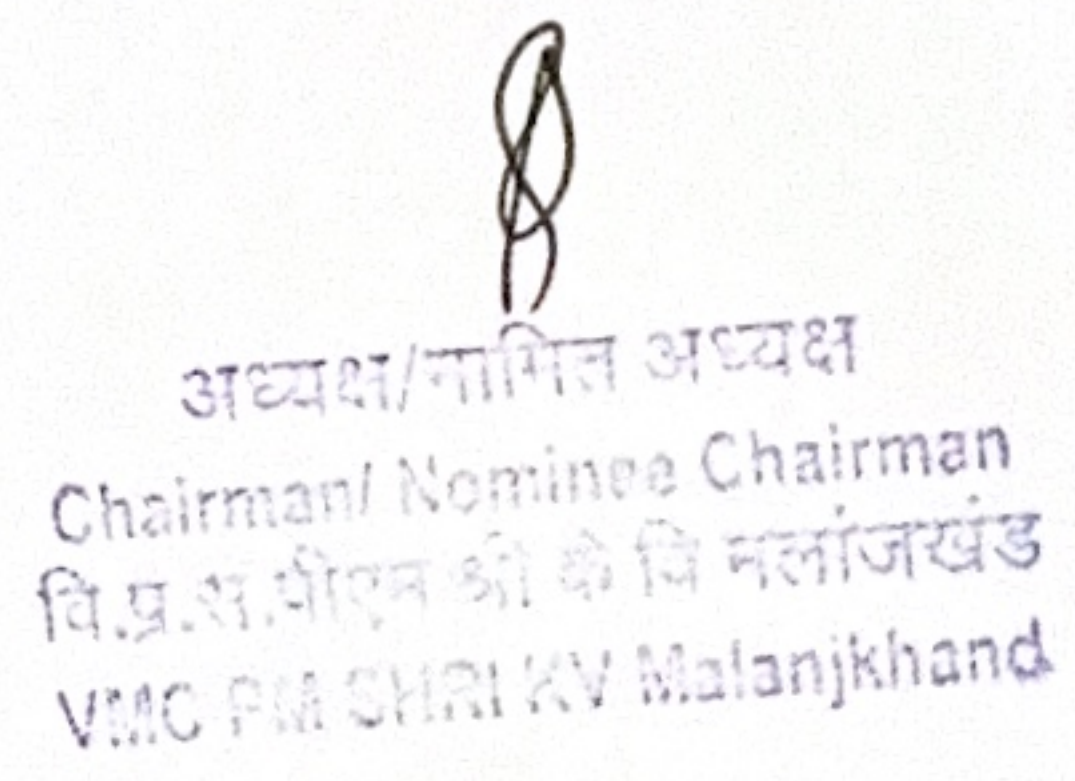 अध्यक्ष/नामित अध्यक्ष
Chairman/ Nominee Chairman
वि.प्र.स.पीएम श्री के वि मलांजखंड
VMC PM SHRI KV Malanjkhand